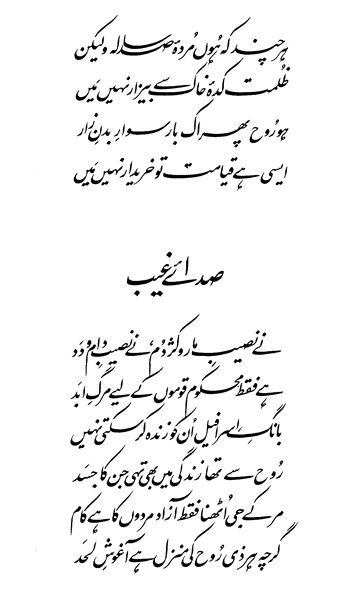 ہر چند کہ ہُوں مُردۂ صد سالہ ولیکن
ظُلمت کدۂ خاک سے بیزار نہیں مَیں
ہو رُوح پھر اک بار سوارِ بدنِ زار
ایسی ہے قیامت تو خریدار نہیں مَیں
صدائے غیب
نے نصیبِ مار و کژدُم، نے نصیبِ دام و دَد
ہے فقط محکوم قوموں کے لیے مرگِ ابَد
بانگِ اِسرافیل اُن کو زندہ کر سکتی نہیں
رُوح سے تھا زندگی میں بھی تہی جن کا جسَد
مر کے جی اُٹھنا فقط آزاد مردوں کا ہے کام
گرچہ ہر ذی رُوح کی منزل ہے آغوشِ لحَد